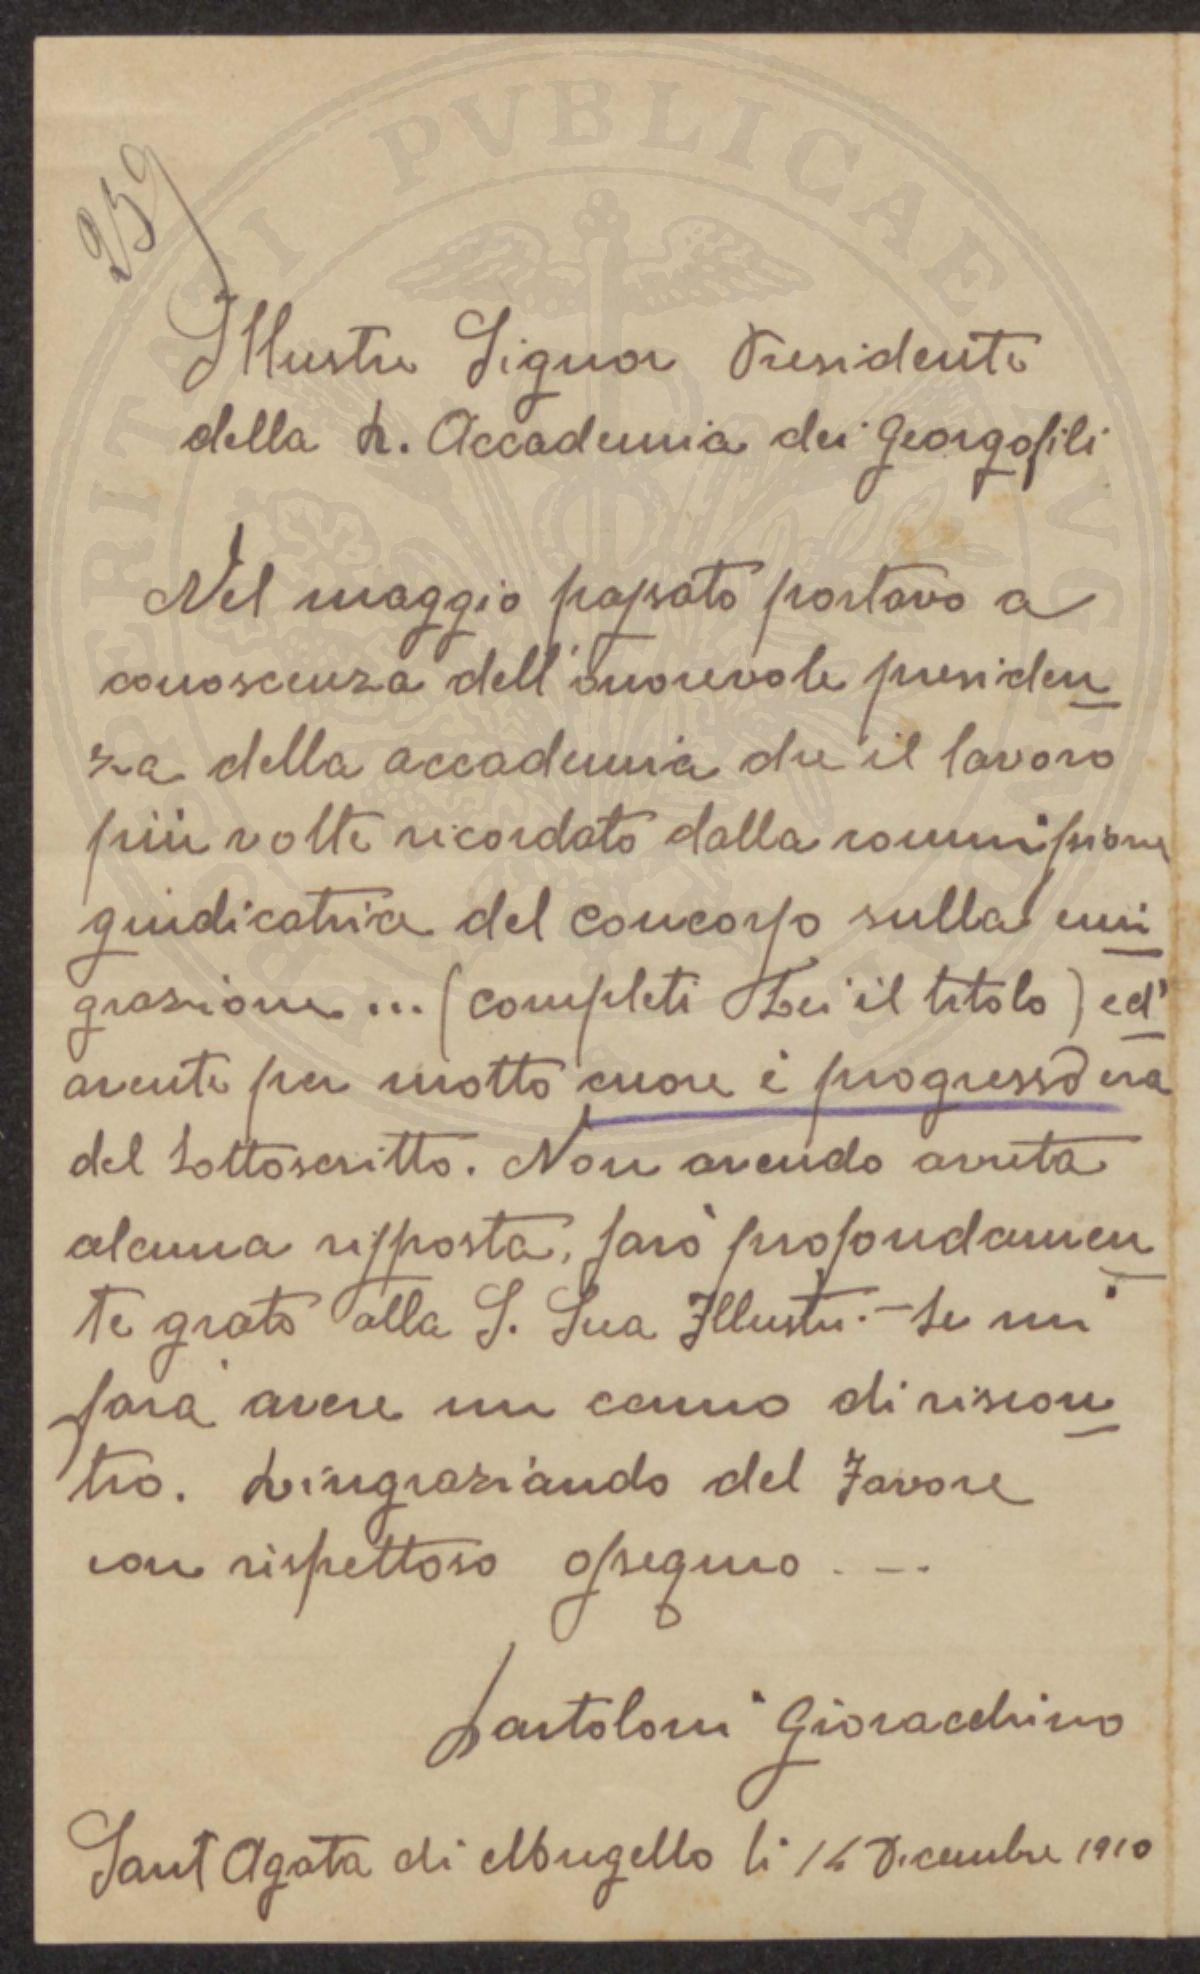 259
Illustre Signor Presidente
della R. Accademia dei Georgofili
Nel maggio passato portavo a
conoscenza dell'onorevole presiden
za della accademia che il lavoro
più volte ricordato dalla commissione
giudicatrice del concorso sulla emi
grazione ... (completi Lei il titolo) ed
avente per motto cuore è progresso era
del sottoscritto. Non avendo avuta
alcuna risposta, sarò profondamen
te grato alla S. Sua Illustr. - se mi
farà avere un cenno di riscon
tro. Ringraziando del favore
con rispettoso ossequio . - .
Bartoloni Gioacchino
Sant Agata di Mugello li Dicembre 1910
PERITATI PVBLICAE AVG